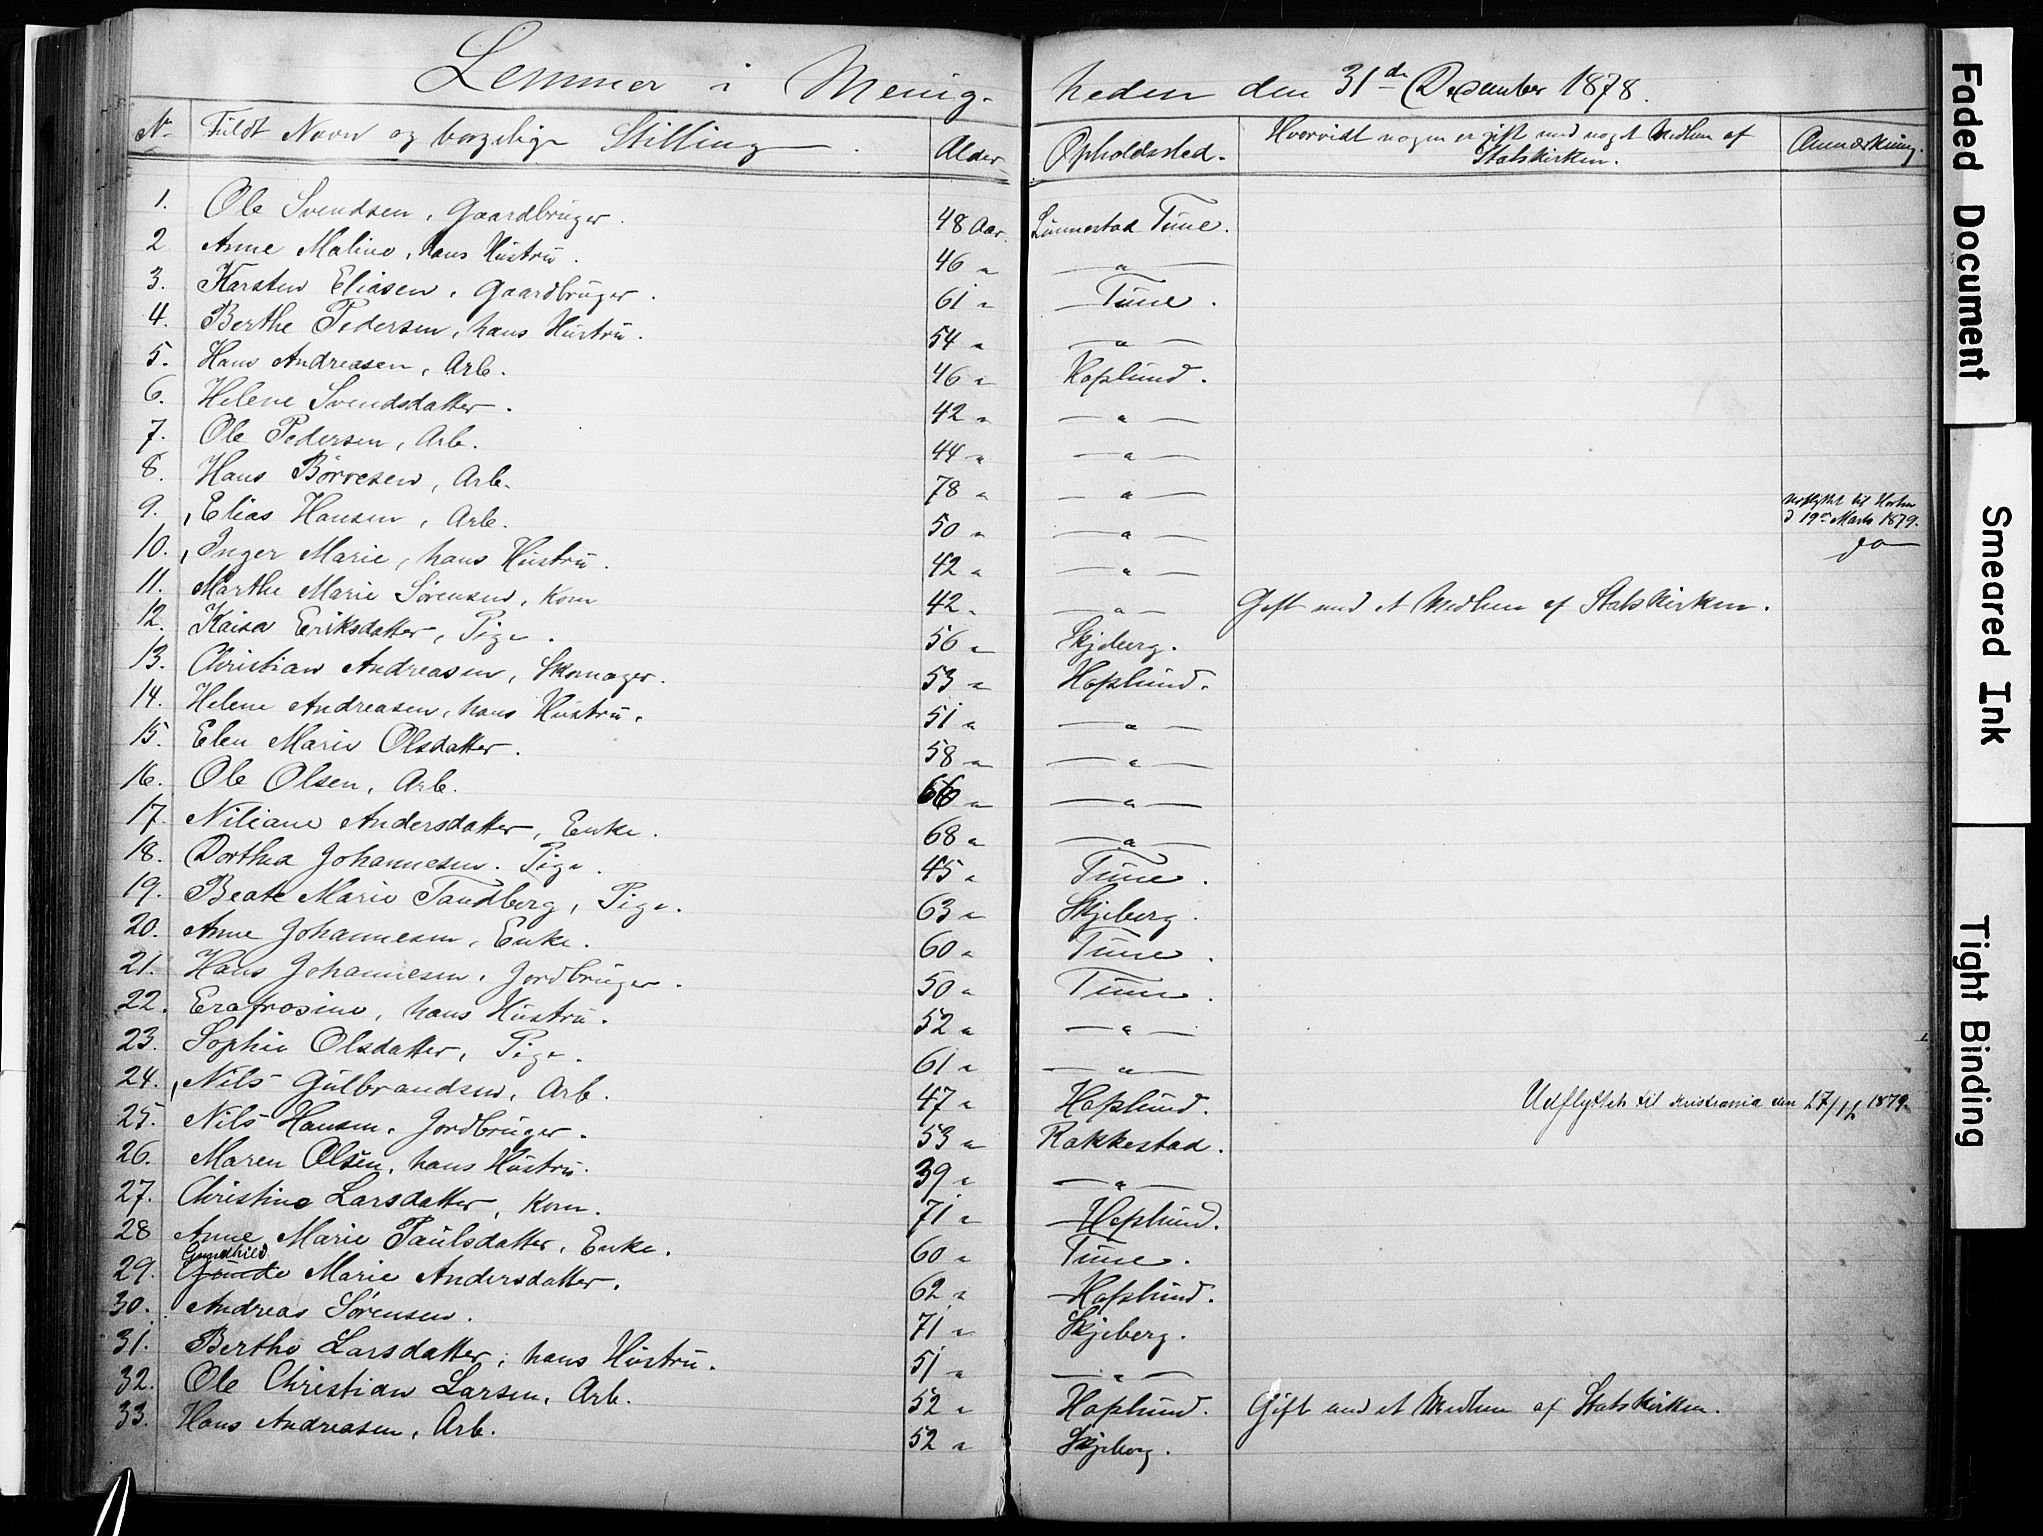 Lemmer i Menig- heden den 31de Desember 1878.
No Fuldt Navn og borgelige Stilling. Alder Opholdssted. Hvorvidt nogen er gift med noget Medlem af Statskirken. Anmærkning.
1. Ole Svendsen, Gaardbruger. 48 Aar. Tune.
2. Anne Maline, hans Hustru. 46 " — " —
3. Karsten Eliasen, Gaardbruger. 61 " Tune.
4. Berthe Pedersen, hans Hustru. 54 " — " —
5. Hans Andreasen, Arb. 46 " Hafslund.
6. Helene Svendsdatter. 42 " — " —
7. Ole Pedersen, Arb. 44 " — " —
8. Hans Børresen, Arb. 78 " — " —
9. Elias Hansen, Arb. 50 " — " — udflyttet til Horten d 19de Marts 1879.
10. Inger Marie, hans Hustru. 42 " — " — do
11. Marthe Marie Sørensen, Kone 42 " — " — Gift med et Medlem af Statskirken.
12. Kaisa Eriksdatter, Pige. 56 " Skjeberg.
13. Christian Andreasen, Skomager. 53 " Hafslund.
14. Helene Andreasen, hans Hustru. 51 " — " —
15. Elen Marie Olsdatter. 58 " — " —
16. Ole Olsen, Arb. 66 " — " —
17. Niliane Andersdatter, Enke. 68 " — " —
18. Dorthea Johannesen. Pige. 45 " Tune.
19. Beate Marie Tandberg, Pige. 63 " Skjeberg.
20. Anne Johannesen, Enke. 60 " Tune.
21. Hans Johannesen, Jordbruger. 50 " Tune.
22. Erafrosine, hans Hustru. 52 " — " —
23. Sophie Olsdatter, Pige. 61 " — " —
24. Nils Gulbrandsen, Arb. 47 " Hafslund. Udflyttet til Kristiania den 17/12 1879.
25. Nils Hansen, Jordbruger. 53 " Rakkestad.
26. Maren Olsen, hans Hustru. 39 " — " —
27. Christine Larsdatter, Kone. 71 " Hafslund.
28 Anne Marie Paulsdatter, Enke. 60 " Tune.
Gunnhild
29. Gunde Marie Andersdatter. 62 " Hafslund.
30. Andreas Sørensen. 71 " Skjeberg.
31. Berthe Larsdatter, hans Hustru. 51 " — " —
32. Ole Christian Larsen, Arb. 52 " Hafslund. Gift med et Medlem af Statskirken.
33. Hans Andreasen, Arb. 52 " Skjeberg.
Faded Document
Smeared Ink
Tight Binding